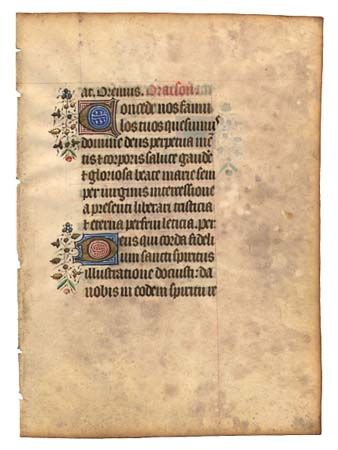 ac. Oremus. Oracson
Concede nos famu
los tuos quesumus
domine deus perpetua me
tis et corporis salute gaude
et gloriosa beate marie sem
per virginis intercessione
a presenti liberari tristicia
et eterna perfrui leticia. per
Deus qui corda fideli
um sancti spiritus
illustratione docuisti: da
nobis in eodem spiritu re